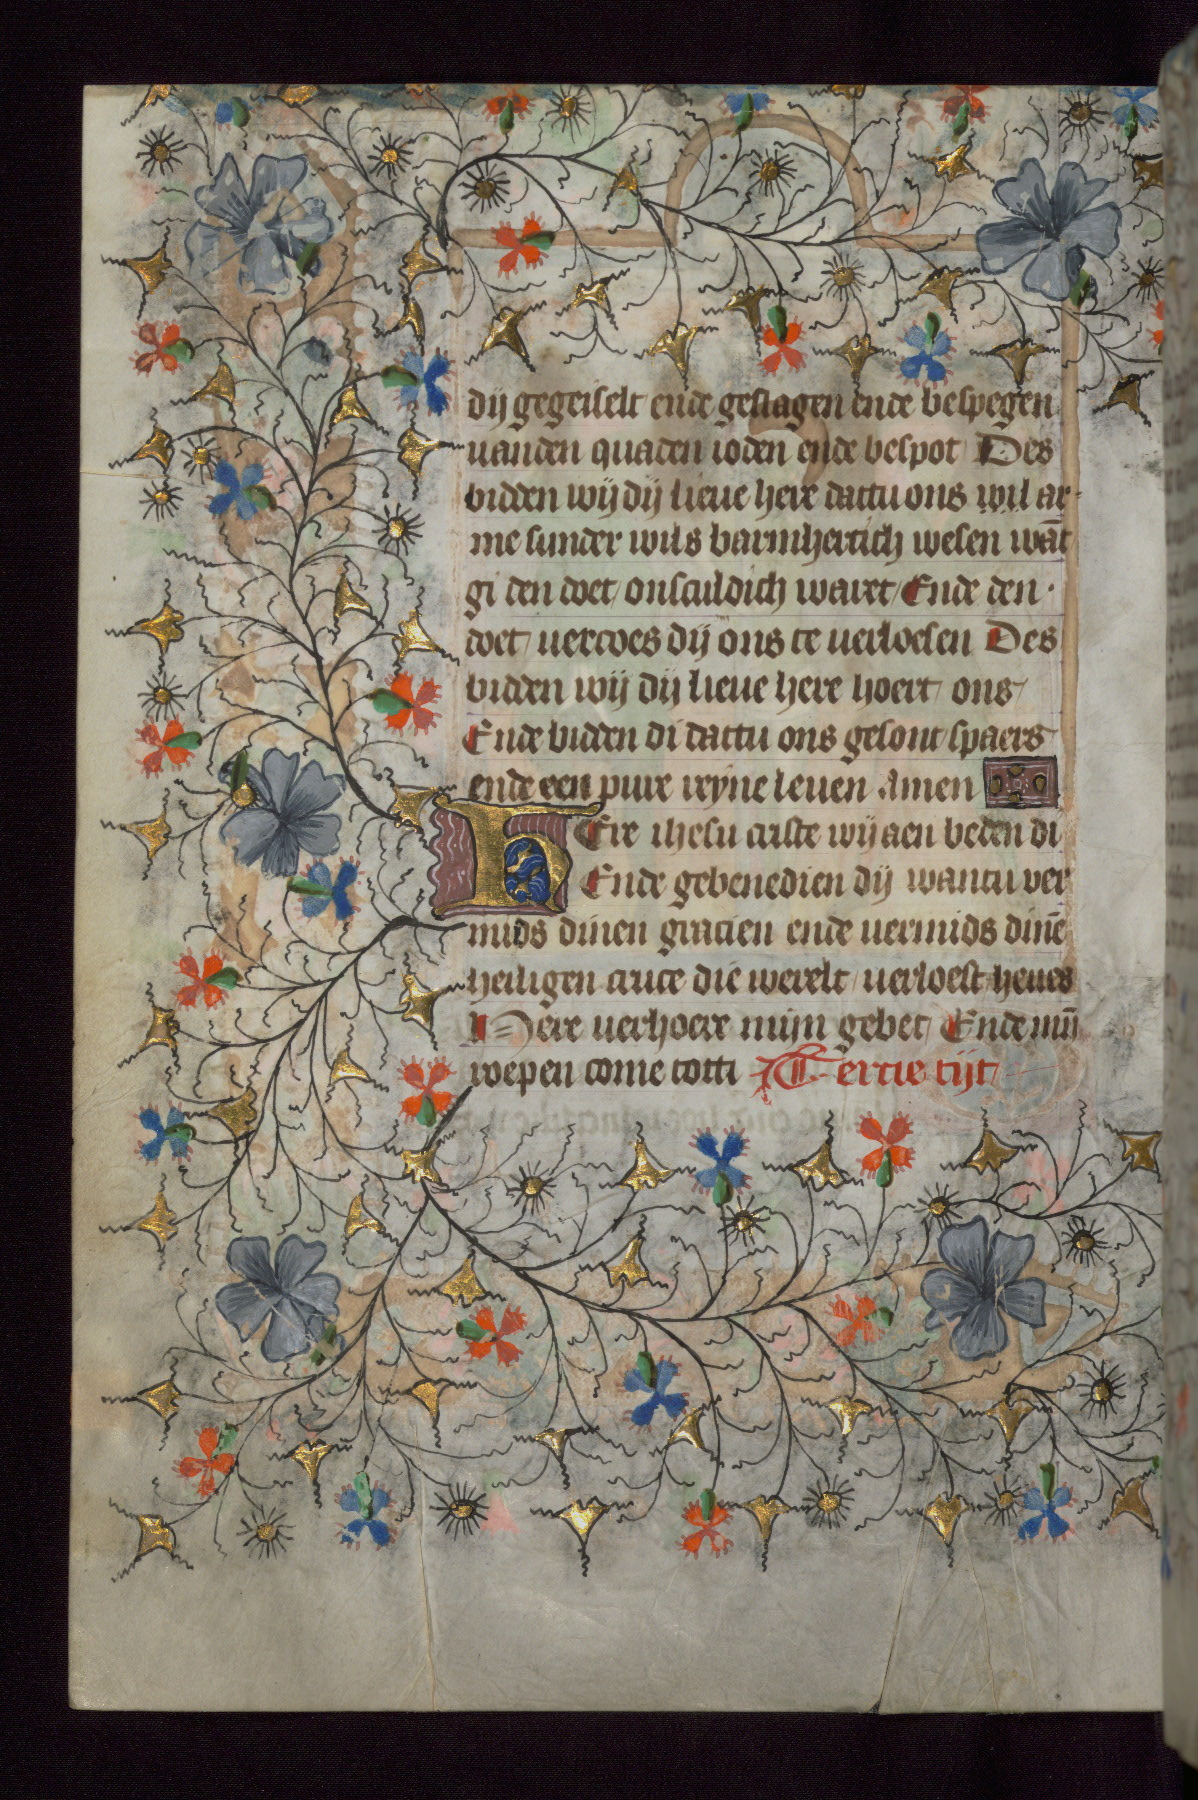 dij gegeiselt ende geslagen ende bespegen
uanden quaden ioden ende bespot Des
bidden wij dij lieue here dattu ons wil ar-
me sunder wils barmhertich wesen wāt
gi den doet onsculdich waret Ende den
doet uercoes dij ons te uerloesen Des
bidden wij dij lieue here hoert ons
Ende bidden di dattu ons gesont spaers
ende een puur reyne leuen Amen
HEre ihesu criste wij aen beden di
Ende gebenedien dij wantu ver
mids dinen gracien ende uermids dinē
heiligen cruce die werelt uerloest heues
Here uerhoere mijn gebet Ende mijn
roepen come totti Tercie tijt